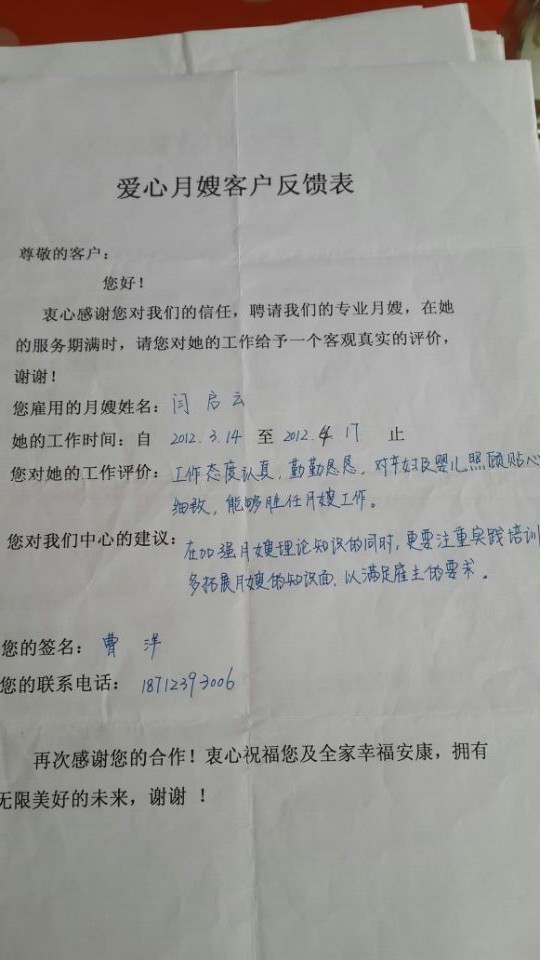 爱心月嫂客户反馈表
尊敬的客户：
您好！
衷心感谢您对我们的信任，聘请我们的专业月嫂，在她
的服务期满时，请您对她的工作给予一个客观真实的评价，
谢谢！
您雇用的月嫂姓名：闫启云
她的工作时间：自 2012.3.14 至 2012.4 17 止
您对她的工作评价：工作态度认真，勤勤恳恳，对产妇及婴儿照顾贴心
细致，能够胜任月嫂工作。
您对我们中心的建议：在加强月嫂理论知识的同时，更要注重实践培训
多拓展月嫂的知识面，以满足雇主的要求。
您的签名：曹 洋
您的联系电话：18712393006
再次感谢您的合作！衷心祝福您及全家幸福安康，拥有
无限美好的未来，谢谢 ！